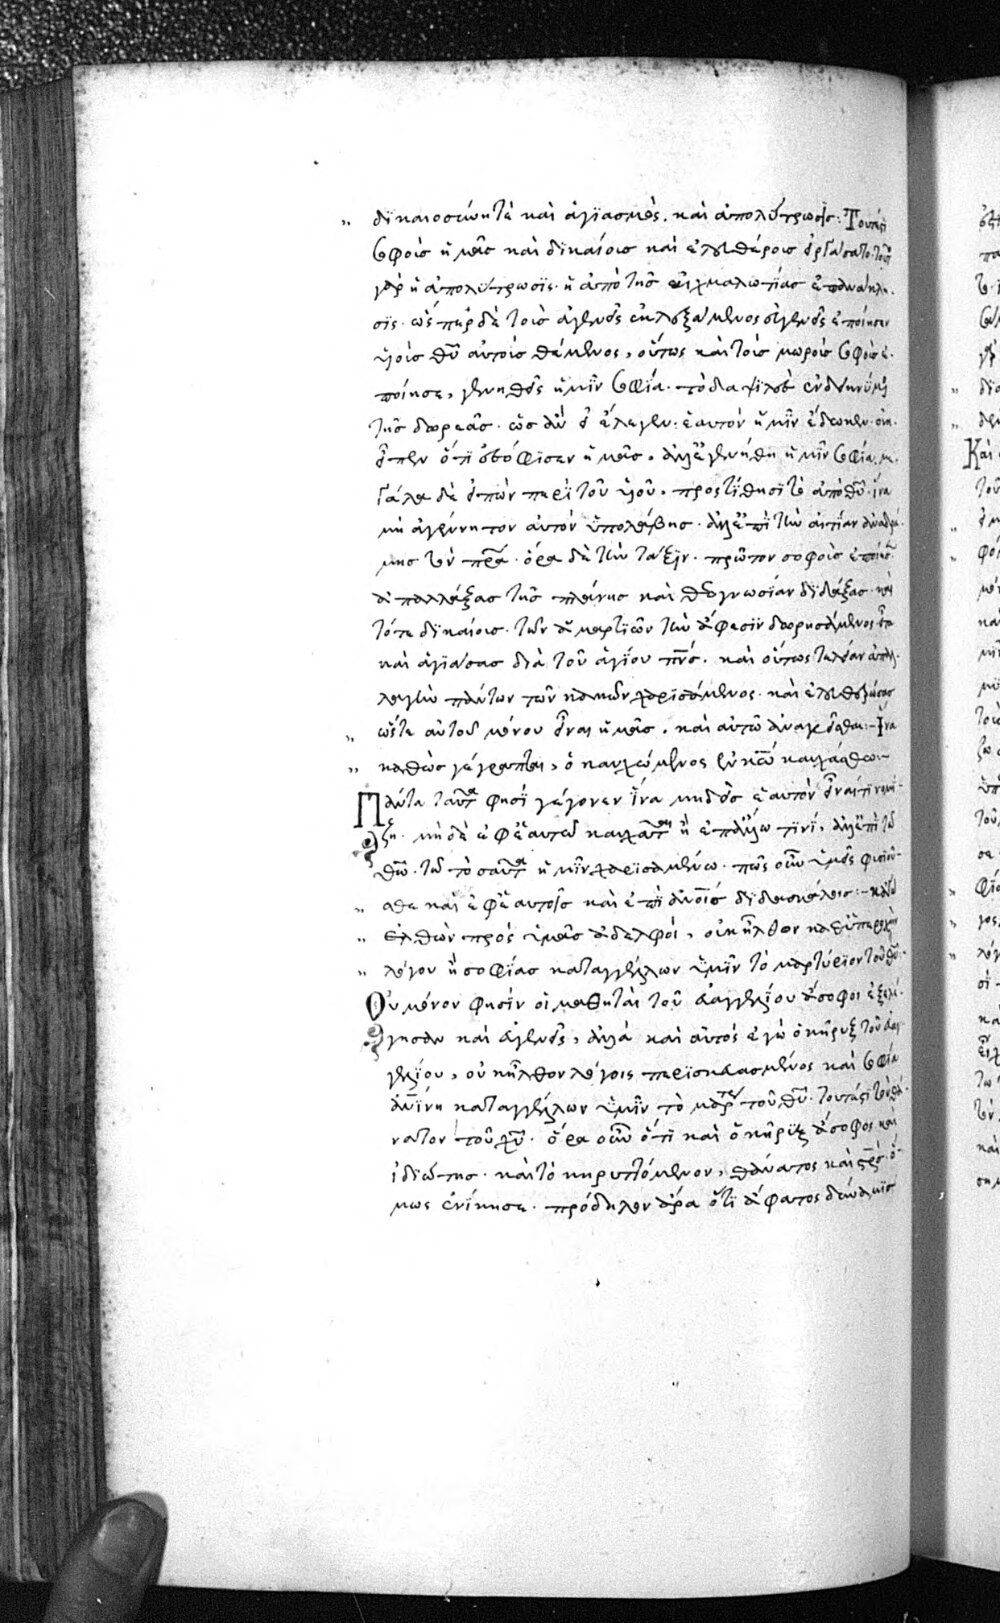 δικαιοσύνη τὲ καὶ ἁγιασμὸς. καὶ ἀπολύτρωσις: Τουτέστι
σοφοὺς ἡμᾶς καὶ δικαίους καὶ ἐλευθέρους εἰργάσατο· τοῦτο
γὰρ ἡ ἀπολύτρωσις· ἡ ἀπὸ τῆς αἰχμαλωσίας ἐπανάκλη
σις· ὥσπερ δὲ τοὺς ἀγενεῖς ἐκλεξάμενος εὐγενεῖς ἐποίησεν
υἱοὺς θυ αὐτοὺς θέμενος, οὕτως καὶ τοὺς μωροὺς σοφοὺς ἐ
ποίησε, γενηθεὶς ἡμῖν σοφία· τὸ δαψιλὲς ἐνδεικνύμενος
τῆς δωρεᾶς· ὡς ἂν εἰ ἔλεγεν· ἑαυτὸν ἡμῖν ἔδωκεν·
εἶπεν ὅτι ἐσόφισεν ἡμᾶς, ἀλλ' ἐγενήθη ἡμῖν σοφία. με
γάλα δὲ εἰπὼν περὶ τοῦ υἱοῦ, προστίθησι τὸ ἀπὸ θυ· ἵνα
μὴ ἀγέννητον αὐτὸν ὑπολάβης· ἀλλ' ἐπὶ τὴν αἰτίαν ἀναδρά
μης τὸν πρα· ὅρα δὲ τὴν τάξιν· πρῶτον σοφοὺς ἐποίησε
ἀπαλλάξας τῆς πλάνης καὶ θεογνωσίαν διδάξας· καὶ
τότε δικαίους· τῶν ἁμαρτιῶν τὴν ἄφεσιν δωρησάμενος· εἶτα
καὶ ἁγιάσας διὰ τοῦ ἁγίου πνς. καὶ οὕτως τελείαν ἀπαλ
λαγὴν πάντων τῶν κακῶν χαρισάμενος· καὶ ἐλευθερώσας
ὥστε αὐτοῦ μόνου εἶναι ἡμᾶς, καὶ αὐτῷ ἀνακεῖσθαι:- Ἵνα
καθὼς γέγραπται, ὁ καυχώμενος ἐν κω καυχάσθω:-
Πάντα ταῦτα φησὶ γέγονεν ἵνα μηδεὶς ἑαυτὸν εἶναί τι νομί
ζη· μηδὲ ἐφ' ἑαυτῷ καυχᾶται ἢ ἐπ' ἄλλω τινί, ἀλλ' ἐπὶ τῷ
θω· τῷ τοσαῦτα ἡμῖν χαρισαμένω· πῶς οὖν ὑμεῖς φυσιοῦ
σθε καὶ ἐφ' ἑαυτοῖς καὶ ἐπὶ ἀνοις διδασκάλοις:- κἀγὼ
ἐλθὼν πρὸς ὑμᾶς ἀδελφοί, οὐκ ἦλθον καθ' ὑπεροχὴν
λόγου ἢ σοφίας καταγγέλλων ὑμῖν τὸ μαρτύριον τοῦ θυ:-
Οὐ μόνον φησὶν οἱ μαθηταὶ τοῦ εὐαγγελίου ἄσοφοι ἐξελέ
γησαν καὶ ἀγενεῖς, ἀλλὰ καὶ αὐτὸς ἐγὼ ὁ κῆρυξ τοῦ εὐαγ
γελίου, οὐκ ἦλθον λόγοις περιεσκευασμένος καὶ σοφία
ἀνίνη καταγγέλλων ὑμῖν τὸ μαρτύριον τοῦ θυ· τουτέστι τὸν θά
νατον τοῦ χυ· ὅρα οὖν ὅτι καὶ ὁ κῆρυξ ἄσοφος καὶ
ἰδιώτης· καὶ τὸ κηρυττόμενον, θάνατος καὶ σρος· ὅ
μως ἐνίκησε· πρόδηλον ἄρα ὅτι ἄφατος δύναμις